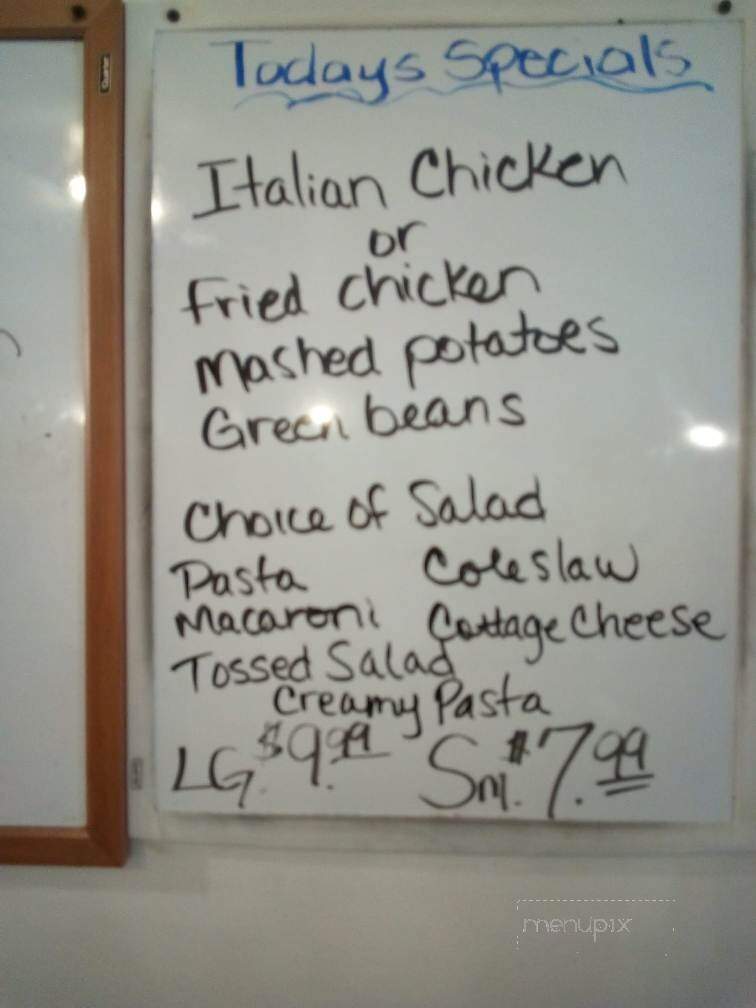 Todays Specials
Italian Chicken
or
Fried chicken
Mashed potatoes
Green beans
Choice of Salad
Pasta Coleslaw
Macaroni Cottage Cheese
Tossed Salad
Creamy Pasta
LG. $9.99 Sm. $7.99
menupix